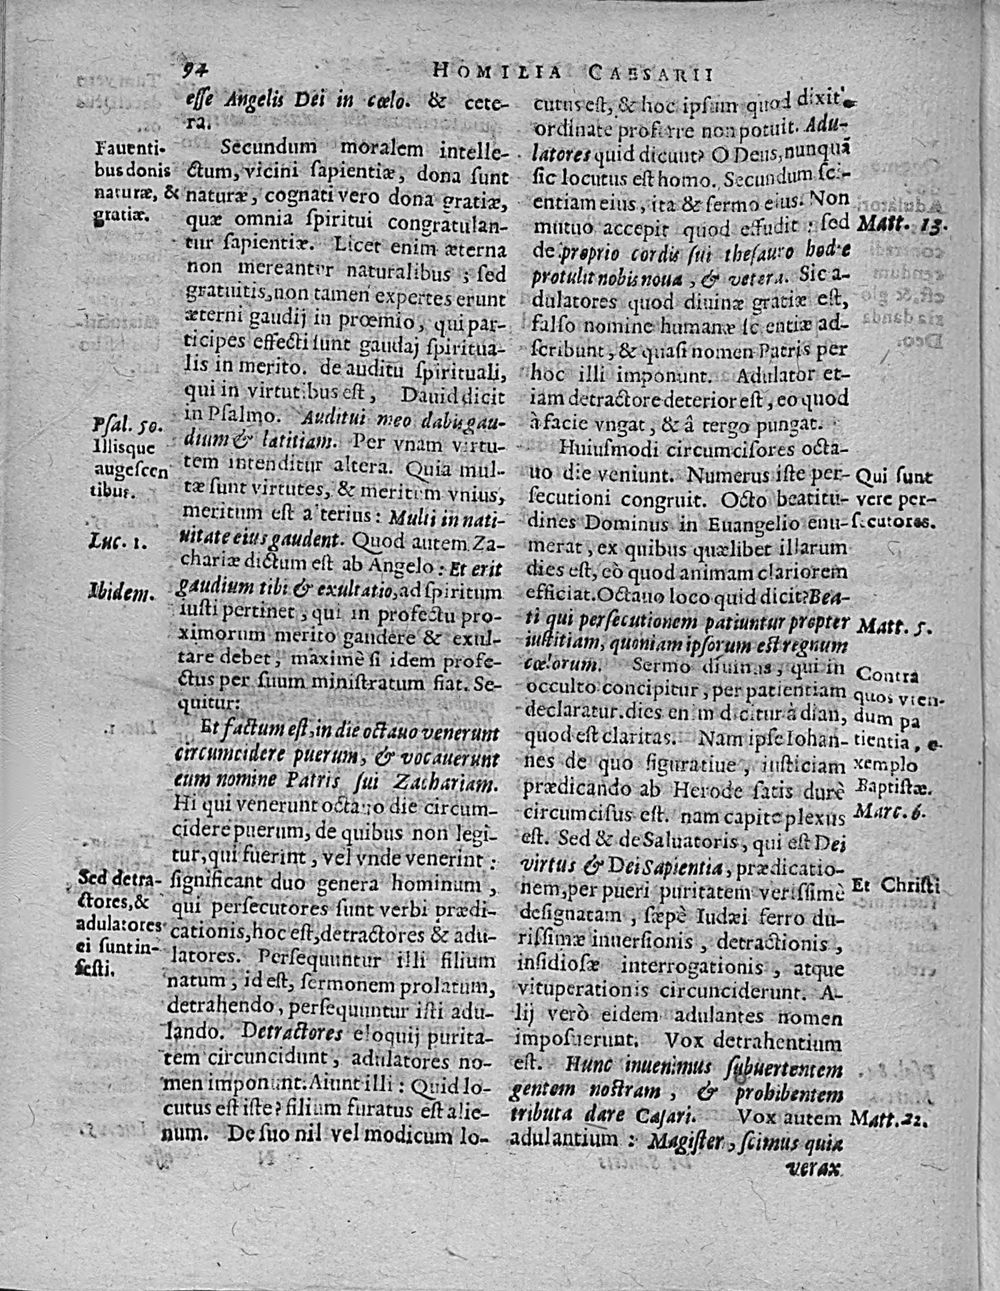 94
HOMILIA CAESARII
esse Angelis Dei in cœlo. & cete-
ra.
Fauenti-
bus donis
naturæ, &
gratiæ.
Secundum moralem intelle-
ctum, vicini sapientiæ, dona sunt
naturæ, cognati vero dona gratiæ,
quæ omnia spiritui congratulan-
tur sapientiæ. Licet enim æterna
non mereantur naturalibus; sed
gratuitis, non tamen expertes erunt
æterni gaudij in prœmio, qui par-
ticipes effecti sunt gaudaj spiritua-
lis in merito. de auditu spirituali,
qui in virtutibus est, Dauid dicit
in Psalmo. Auditui meo dabis gau-
dium & lætitiam. Per vnam virtu-
tem intenditur altera. Quia mul-
tæ sunt virtutes, & meritum vnius,
meritum est alterius: Multi in nati-
uitate eius gaudent. Quod autem Za-
chariæ dictum est ab Angelo: Et erit
gaudium tibi & exultatio, ad spiritum
iusti pertinet, qui in profectu pro-
ximorum merito gaudere & exul-
tare debet, maximè si idem profe-
ctus per suum ministratum fiat. Se-
quitur:
Psal. 50.
Illisque
augescen
tibus.
Luc. 1.
Ibidem.
Et factum est, in die octauo venerunt
circumcidere puerum, & vocauerunt
eum nomine Patris sui Zachariam.
Hi qui venerunt octauo die circum-
cidere puerum, de quibus non legi-
tur, qui fuerint, vel vnde venerint:
significant duo genera hominum,
qui persecutores sunt verbi prædi-
cationis, hoc est, detractores & adu-
latores. Persequuntur illi filium
natum, id est, sermonem prolatum,
detrahendo, persequuntur isti adu-
lando. Detractores eloquij purita-
tem circuncidunt, adulatores no-
men imponunt. Aiunt illi: Quid lo-
cutus est iste? filium furatus est alie-
num. De suo nil vel modicum lo-
Sed detra-
ctores, &
adulatores
ei sunt in-
festi.
cutus est, & hoc ipsum quod dixit
ordinate proferre non potuit. Adu-
latores quid dicunt? O Deus, nunquā
sic locutus est homo. Secundum sci-
entiam eius, ita & sermo eius. Non
mutuo accepit quod effudit: sed
de proprio cordis sui thesauro hodie
protulit nobis noua, & vetera. Sic a-
dulatores quod diuinæ gratiæ est,
falso nomine humanæ scientiæ ad-
scribunt, & quasi nomen Patris per
hoc illi imponunt. Adulator et-
iam detractore deterior est, eo quod
à facie vngat, & â tergo pungat.
Matt. 13.
Huiusmodi circumcisores octa-
uo die veniunt. Numerus iste per-
secutioni congruit. Octo beatitu-
dines Dominus in Euangelio enu-
merat, ex quibus quælibet illarum
dies est, eò quod animam clariorem
efficiat. Octauo loco quid dicit? Bea-
ti qui persecutionem patiuntur propter
iustitiam, quoniam ipsorum est regnum
cœlorum. Sermo diuinus, qui in
occulto concipitur, per patientiam
declaratur. dies enim dicitur à dian,
quod est claritas. Nam ipse Iohan-
nes de quo figuratiue, iusticiam
prædicando ab Herode satis durè
circumcisus est. nam capite plexus
est. Sed & de Saluatoris, qui est Dei
virtus & Dei Sapientia, prædicatio-
nem, per pueri puritatem verissimè
designatam, sæpè Iudæi ferro du-
rissimæ inuersionis, detractionis,
insidiosæ interrogationis, atque
vituperationis circunciderunt. A-
lij verò eidem adulantes nomen
imposuerunt. Vox detrahentium
est. Hunc inuenimus subuertentem
gentem nostram, & prohibentem
tributa dare Cæsari. Vox autem
adulantium: Magister, scimus quia
verax
Qui sunt
vere per-
secutores.
Matt. 5.
Contra
quos vien-
dum pa
tientia, e-
xemplo
Baptistæ.
Marc. 6.
Et Christi
Matt. 22.